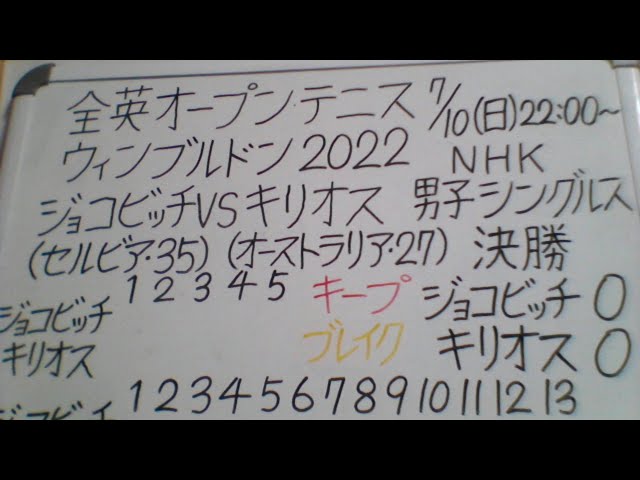 全英オープンテニス 7/10(日)22:00~
ウィンブルドン2022 NHK
ジョコビッチVSキリオス 男子シングルス
(セルビア・35) (オーストラリア・27) 決勝
1 2 3 4 5 キープ ジョコビッチ 0
ジョコビッチ
キリオス ブレイク キリオス 0
1 2 3 4 5 6 7 8 9 10 11 12 13